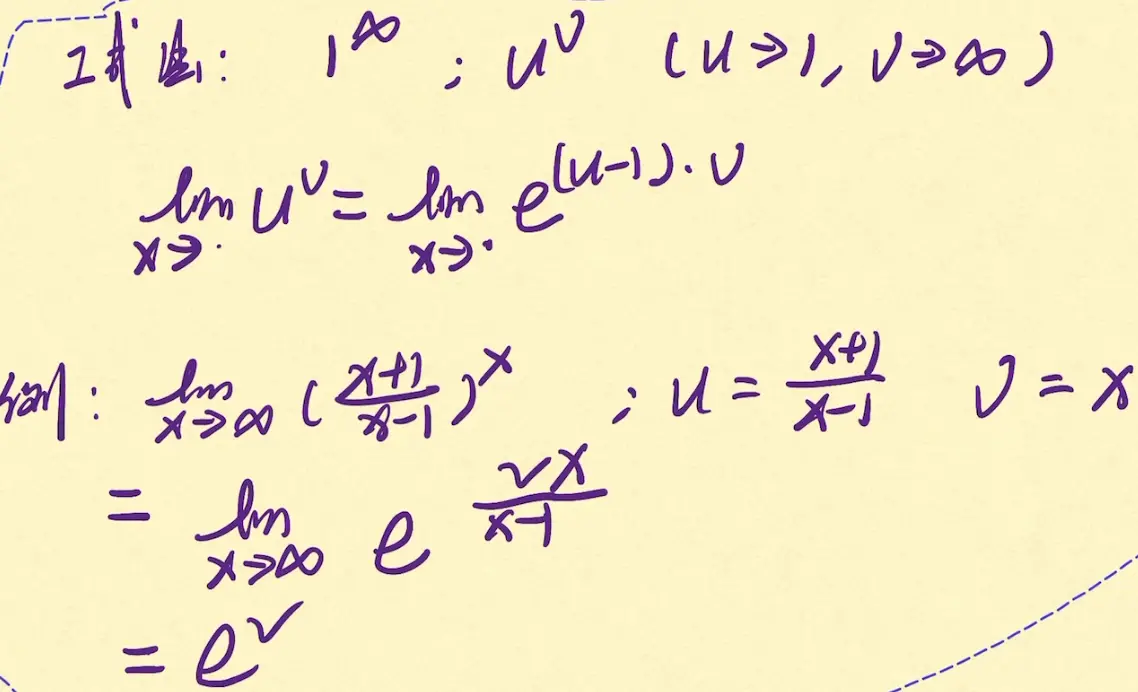 1^∞ ; u^v (u→1, v→∞)
lim x→· u^v = lim x→· e^{(u-1)·v}
例: lim x→∞ (\frac{x+1}{x-1})^x ; u = \frac{x+1}{x-1} v = x
= lim x→∞ e^{\frac{2x}{x-1}}
= e^2